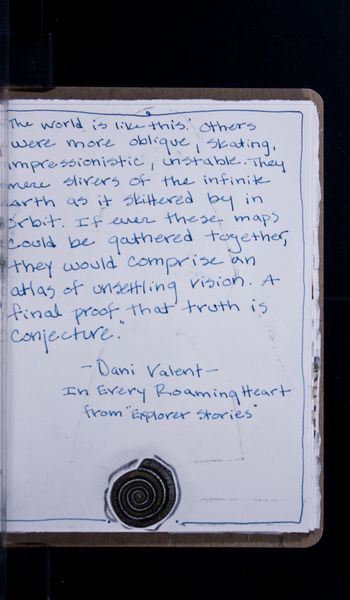 The world is like this.' Others
were more oblique, skating,
impressionistic, unstable. They
were slivers of the infinite
earth as it skittered by in
orbit. If ever these maps
could be gathered together,
they would comprise an
atlas of unsettling vision. A
final proof that truth is
conjecture."
-Dani Valent-
In Every Roaming Heart
from "Explorer Stories"